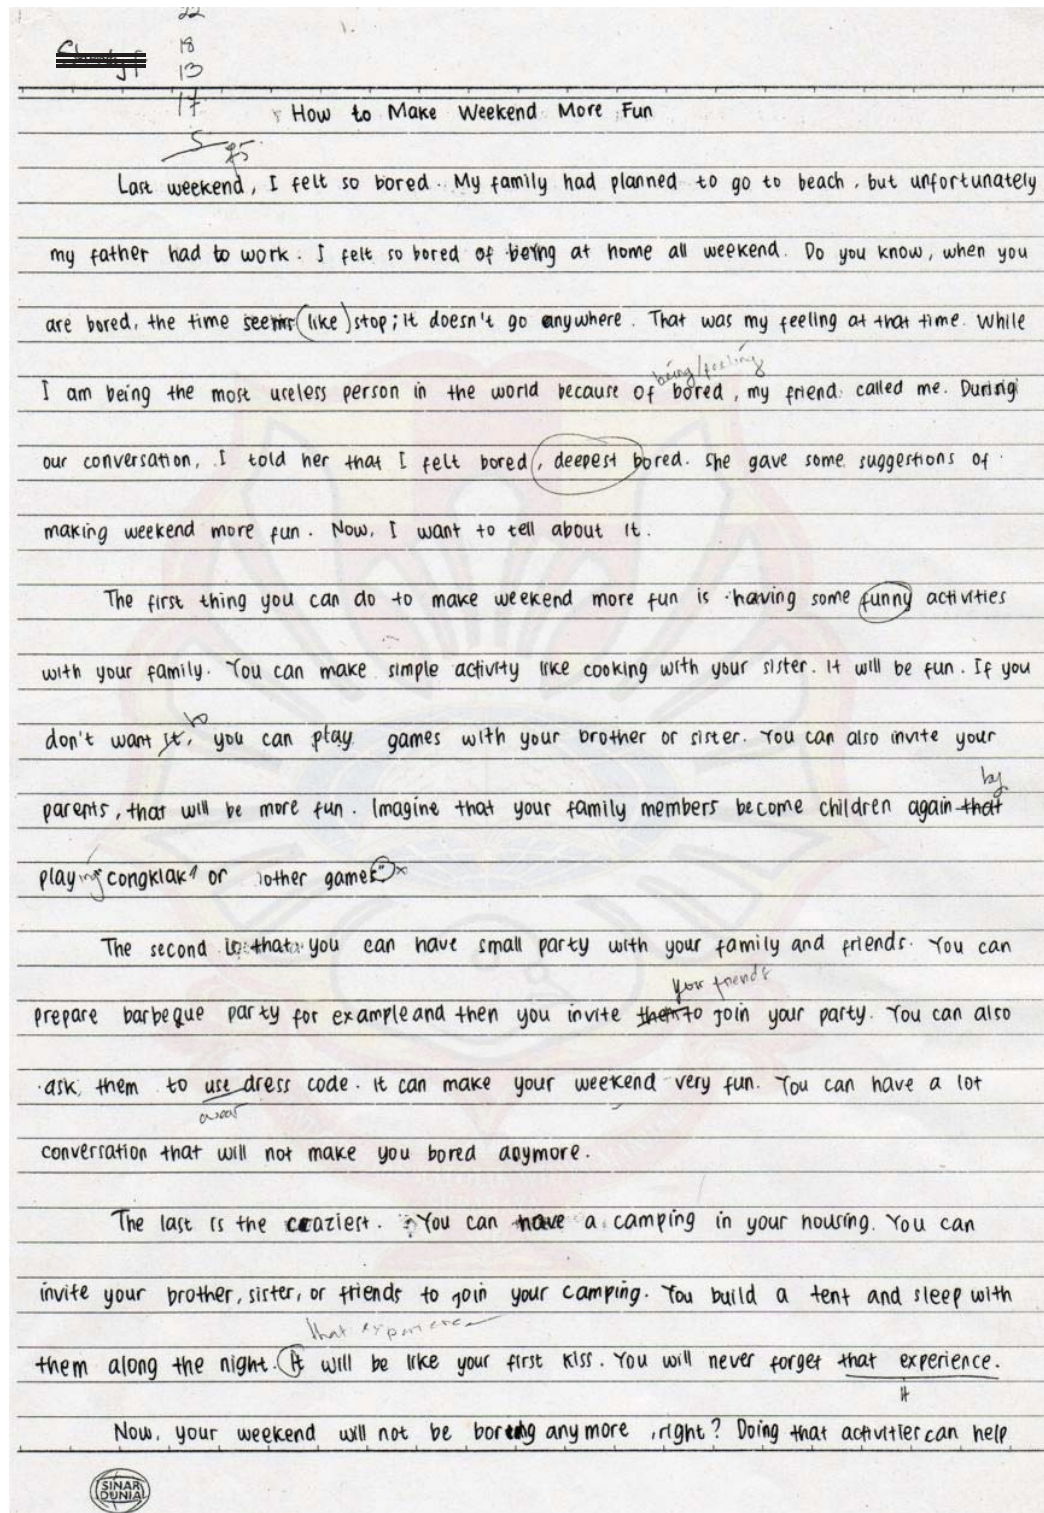 22
18
13
17
How to Make Weekend More Fun
5
75
Last weekend, I felt so bored. My family had planned to go to beach, but unfortunately
my father had to work. I felt so bored of being at home all weekend. Do you know, when you
are bored, the time seems (like) stop; it doesn't go anywhere. That was my feeling at that time. While
being/feeling
I am being the most useless person in the world because of bored, my friend called me. During
our conversation, I told her that I felt bored, deepest bored. She gave some suggestions of
making weekend more fun. Now, I want to tell about it.
The first thing you can do to make weekend more fun is having some funny activities
with your family. You can make simple activity like cooking with your sister. It will be fun. If you
to
don't want it, you can play games with your brother or sister. You can also invite your
by
parents, that will be more fun. Imagine that your family members become children again that
playing congklak or other games
The second is that you can have small party with your family and friends. You can
your friends
prepare barbeque party for example and then you invite them to join your party. You can also
ask them to use dress code. It can make your weekend very fun. You can have a lot
wear
conversation that will not make you bored anymore.
The last is the craziest. You can have a camping in your housing. You can
invite your brother, sister, or friends to join your camping. You build a tent and sleep with
that experience
them along the night. It will be like your first kiss. You will never forget that experience.
it
Now, your weekend will not be boring anymore, right? Doing that activities can help
SINAR
DUNIA